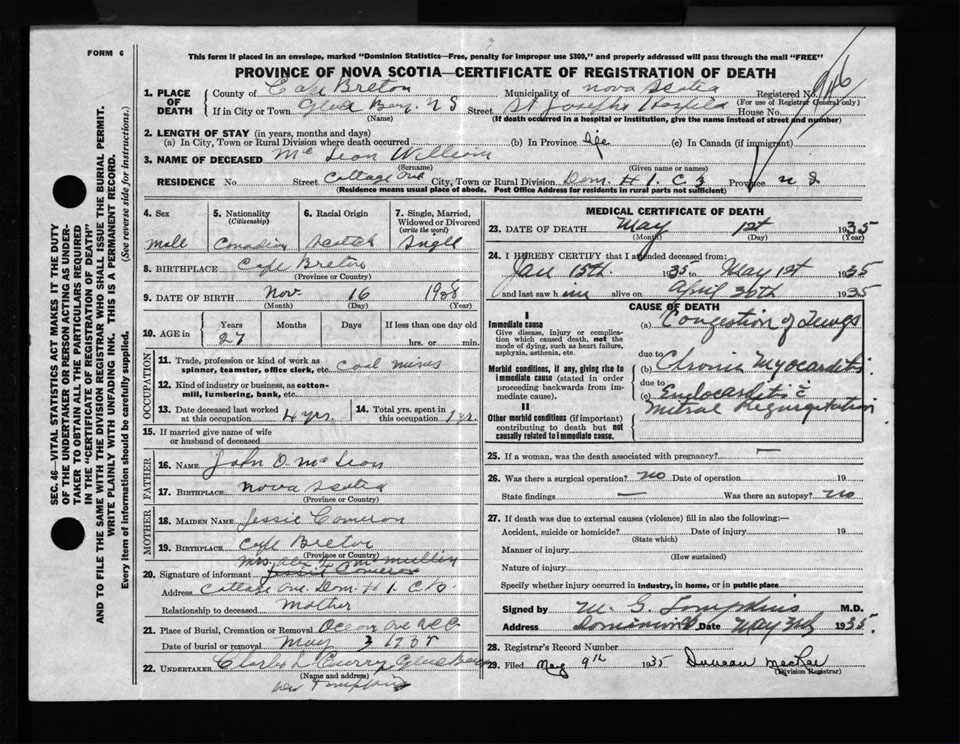 FORM 6
This form if placed in an envelope, marked "Dominion Statistics—Free, penalty for improper use $300," and properly addressed will pass through the mail "FREE"
PROVINCE OF NOVA SCOTIA—CERTIFICATE OF REGISTRATION OF DEATH
1. PLACE OF DEATH
County of Cape Breton Municipality of Nova Scotia Registered No.
(For use of Registrar General only)
If in City or Town Glace Bay, N S Street St Josephs Hospital House No.
(Name) (If death occurred in a hospital or institution, give the name instead of street and number)
2. LENGTH OF STAY (in years, months and days)
(a) In City, Town or Rural Division where death occurred (b) In Province life (c) In Canada (if immigrant)
3. NAME OF DECEASED Mc Leon William
(Surname) (Given name or names)
RESIDENCE No Street Cottage Ave City, Town or Rural Division Dom. # 1. C B Province N S
(Residence means usual place of abode. Post Office Address for residents in rural parts not sufficient)
4. Sex
Male
5. Nationality
(Citizenship)
Canadian
6. Racial Origin
Scotch
7. Single, Married, Widowed or Divorced
(write the word)
Single
8. BIRTHPLACE Cape Breton
(Province or Country)
9. DATE OF BIRTH Nov. 16 1908
(Month) (Day) (Year)
10. AGE in
Years Months Days If less than one day old
27 hrs. or min.
OCCUPATION
11. Trade, profession or kind of work as spinner, teamster, office clerk, etc. Coal mines
12. Kind of industry or business, as cotton-mill, lumbering, bank, etc.
13. Date deceased last worked at this occupation 4 yrs. 14. Total yrs. spent in this occupation 1 yr.
15. If married give name of wife or husband of deceased
FATHER
16. NAME John D. Mc Leon
17. BIRTHPLACE Nova Scotia
(Province or Country)
MOTHER
18. MAIDEN NAME Jessie Cameron
19. BIRTHPLACE Cape Breton
(Province or Country)
Mrs. Alex L. McMullin
20. Signature of informant Jessie Cameron
Address Cottage Ave. Dom. # 1. C.B.
Relationship to deceased Mother
21. Place of Burial, Cremation or Removal Ocean Ave
Date of burial or removal May 3 1935
22. UNDERTAKER Charles L Curry Glace Bay
(Name and address)
MEDICAL CERTIFICATE OF DEATH
23. DATE OF DEATH May 1st 1935
(Month) (Day) (Year)
24. I HEREBY CERTIFY that I attended deceased from:
Jan 15th 1935 to May 1st 1935
and last saw him alive on April 30th 1935
CAUSE OF DEATH
I
Immediate cause
Give disease, injury or complication which caused death, not the mode of dying, such as heart failure, asphyxia, asthenia, etc.
(a) Congestion of Lungs
due to
Morbid conditions, if any, giving rise to immediate cause (stated in order proceeding backwards from immediate cause).
(b) Chronic Myocarditis
due to
(c) Endocarditis c̄
Mitral Regurgitation
II
Other morbid conditions (if important) contributing to death but not causally related to immediate cause.
25. If a woman, was the death associated with pregnancy? —
26. Was there a surgical operation? no Date of operation 19
State findings — Was there an autopsy? no
27. If death was due to external causes (violence) fill in also the following:—
Accident, suicide or homicide? Date of injury 19
(State which)
Manner of injury
(How sustained)
Nature of injury
Specify whether injury occurred in industry, in home, or in public place
Signed by M. G. Tompkins M.D.
Address Dominion Date May 3rd 1935.
28. Registrar's Record Number
29. Filed May 9th 1935 Duncan McRae
(Division Registrar)
SEC. 46—VITAL STATISTICS ACT MAKES IT THE DUTY
OF THE UNDERTAKER OR PERSON ACTING AS UNDER-
TAKER TO OBTAIN ALL THE PARTICULARS REQUIRED
IN THE "CERTIFICATE OF REGISTRATION OF DEATH"
AND TO FILE THE SAME WITH THE DIVISION REGISTRAR WHO SHALL ISSUE THE BURIAL PERMIT.
WRITE PLAINLY WITH UNFADING INK. THIS IS A PERMANENT RECORD.
Every item of information should be carefully supplied. (See reverse side for instructions.)